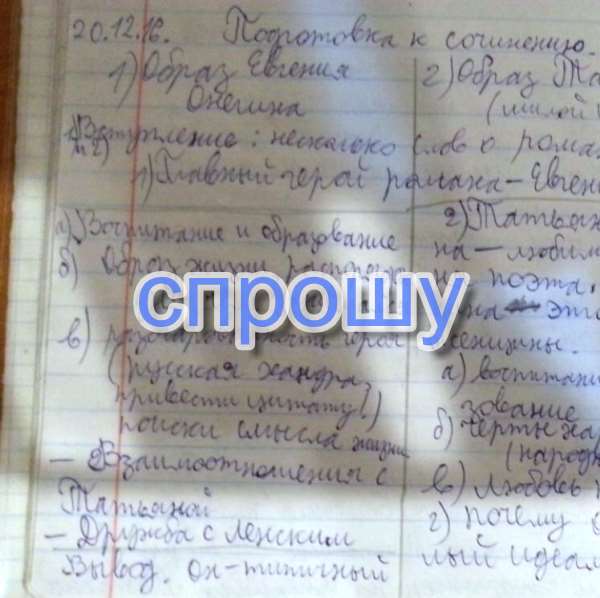 20.12.16. Подготовка к сочинению.
1) Образ Евгения
Онегина
2) Образ Та
(милой
Вступление: несколько слов о рома
1) Главный герой романа – Евген
а) Воспитание и образование
б) Образ жизни, распорядо
в) разочарованность героя
(русская хандра,
привести цитату!)
поиски смысла жизни
– Взаимоотношения с
Татьяной
– Дружба с Ленским
Вывод. Он – типичный
2) Татьян
на – любим
поэта.
на это
женщины.
а) воспитани
зование
б) черты ха
(народ
в) любовь
г) почему
лый идеал
спрошу